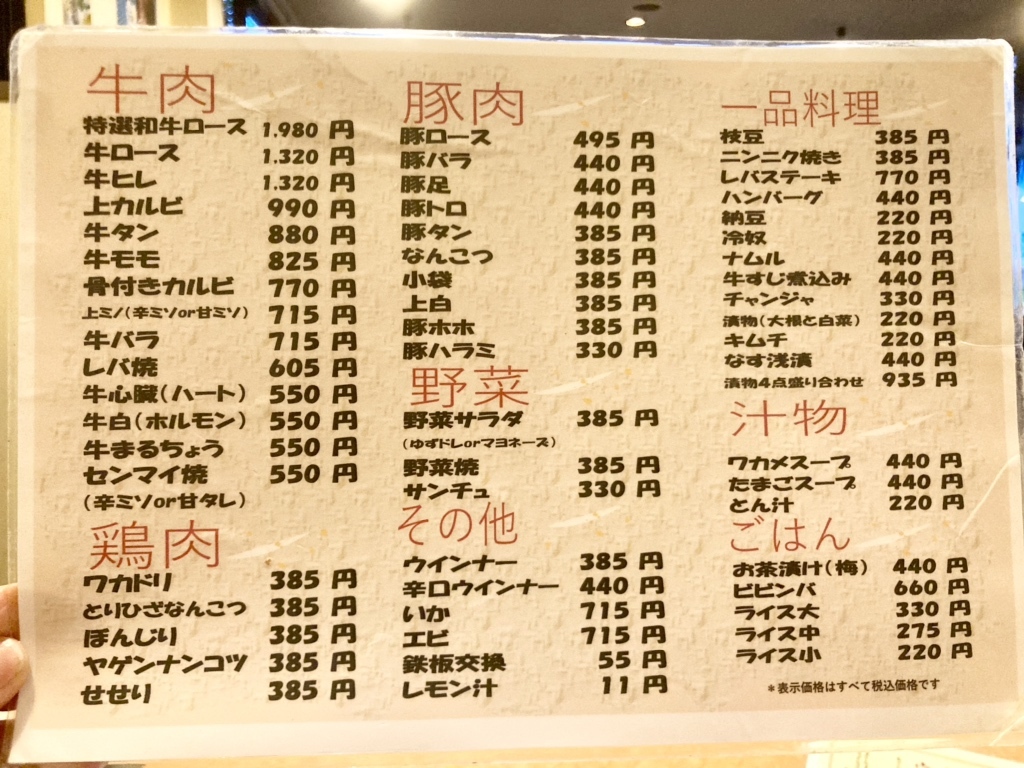 牛肉
特選和牛ロース 1.980 円
牛ロース 1.320 円
牛ヒレ 1.320 円
上カルビ 990 円
牛タン 880 円
牛モモ 825 円
骨付きカルビ 770 円
上ミノ(辛ミソor甘ミソ) 715 円
牛バラ 715 円
レバ焼 605 円
牛心臓(ハート) 550 円
牛白(ホルモン) 550 円
牛まるちょう 550 円
センマイ焼 550 円
(辛ミソor甘タレ)
鶏肉
ワカドリ 385 円
とりひざなんこつ 385 円
ぼんじり 385 円
ヤゲンナンコツ 385 円
せせり 385 円
豚肉
豚ロース 495 円
豚バラ 440 円
豚足 440 円
豚トロ 440 円
豚タン 385 円
なんこつ 385 円
小袋 385 円
上白 385 円
豚ホホ 385 円
豚ハラミ 330 円
野菜
野菜サラダ 385 円
(ゆずドレorマヨネーズ)
野菜焼 385 円
サンチュ 330 円
その他
ウインナー 385 円
辛口ウインナー 440 円
いか 715 円
エビ 715 円
鉄板交換 55 円
レモン汁 11 円
一品料理
枝豆 385 円
ニンニク焼き 385 円
レバステーキ 770 円
ハンバーグ 440 円
納豆 220 円
冷奴 220 円
ナムル 440 円
牛すじ煮込み 440 円
チャンジャ 330 円
漬物(大根と白菜) 220 円
キムチ 220 円
なす浅漬 440 円
漬物4点盛り合わせ 935 円
汁物
ワカメスープ 440 円
たまごスープ 440 円
とん汁 220 円
ごはん
お茶漬け(梅) 440 円
ビビンバ 660 円
ライス大 330 円
ライス中 275 円
ライス小 220 円
＊表示価格はすべて税込価格です